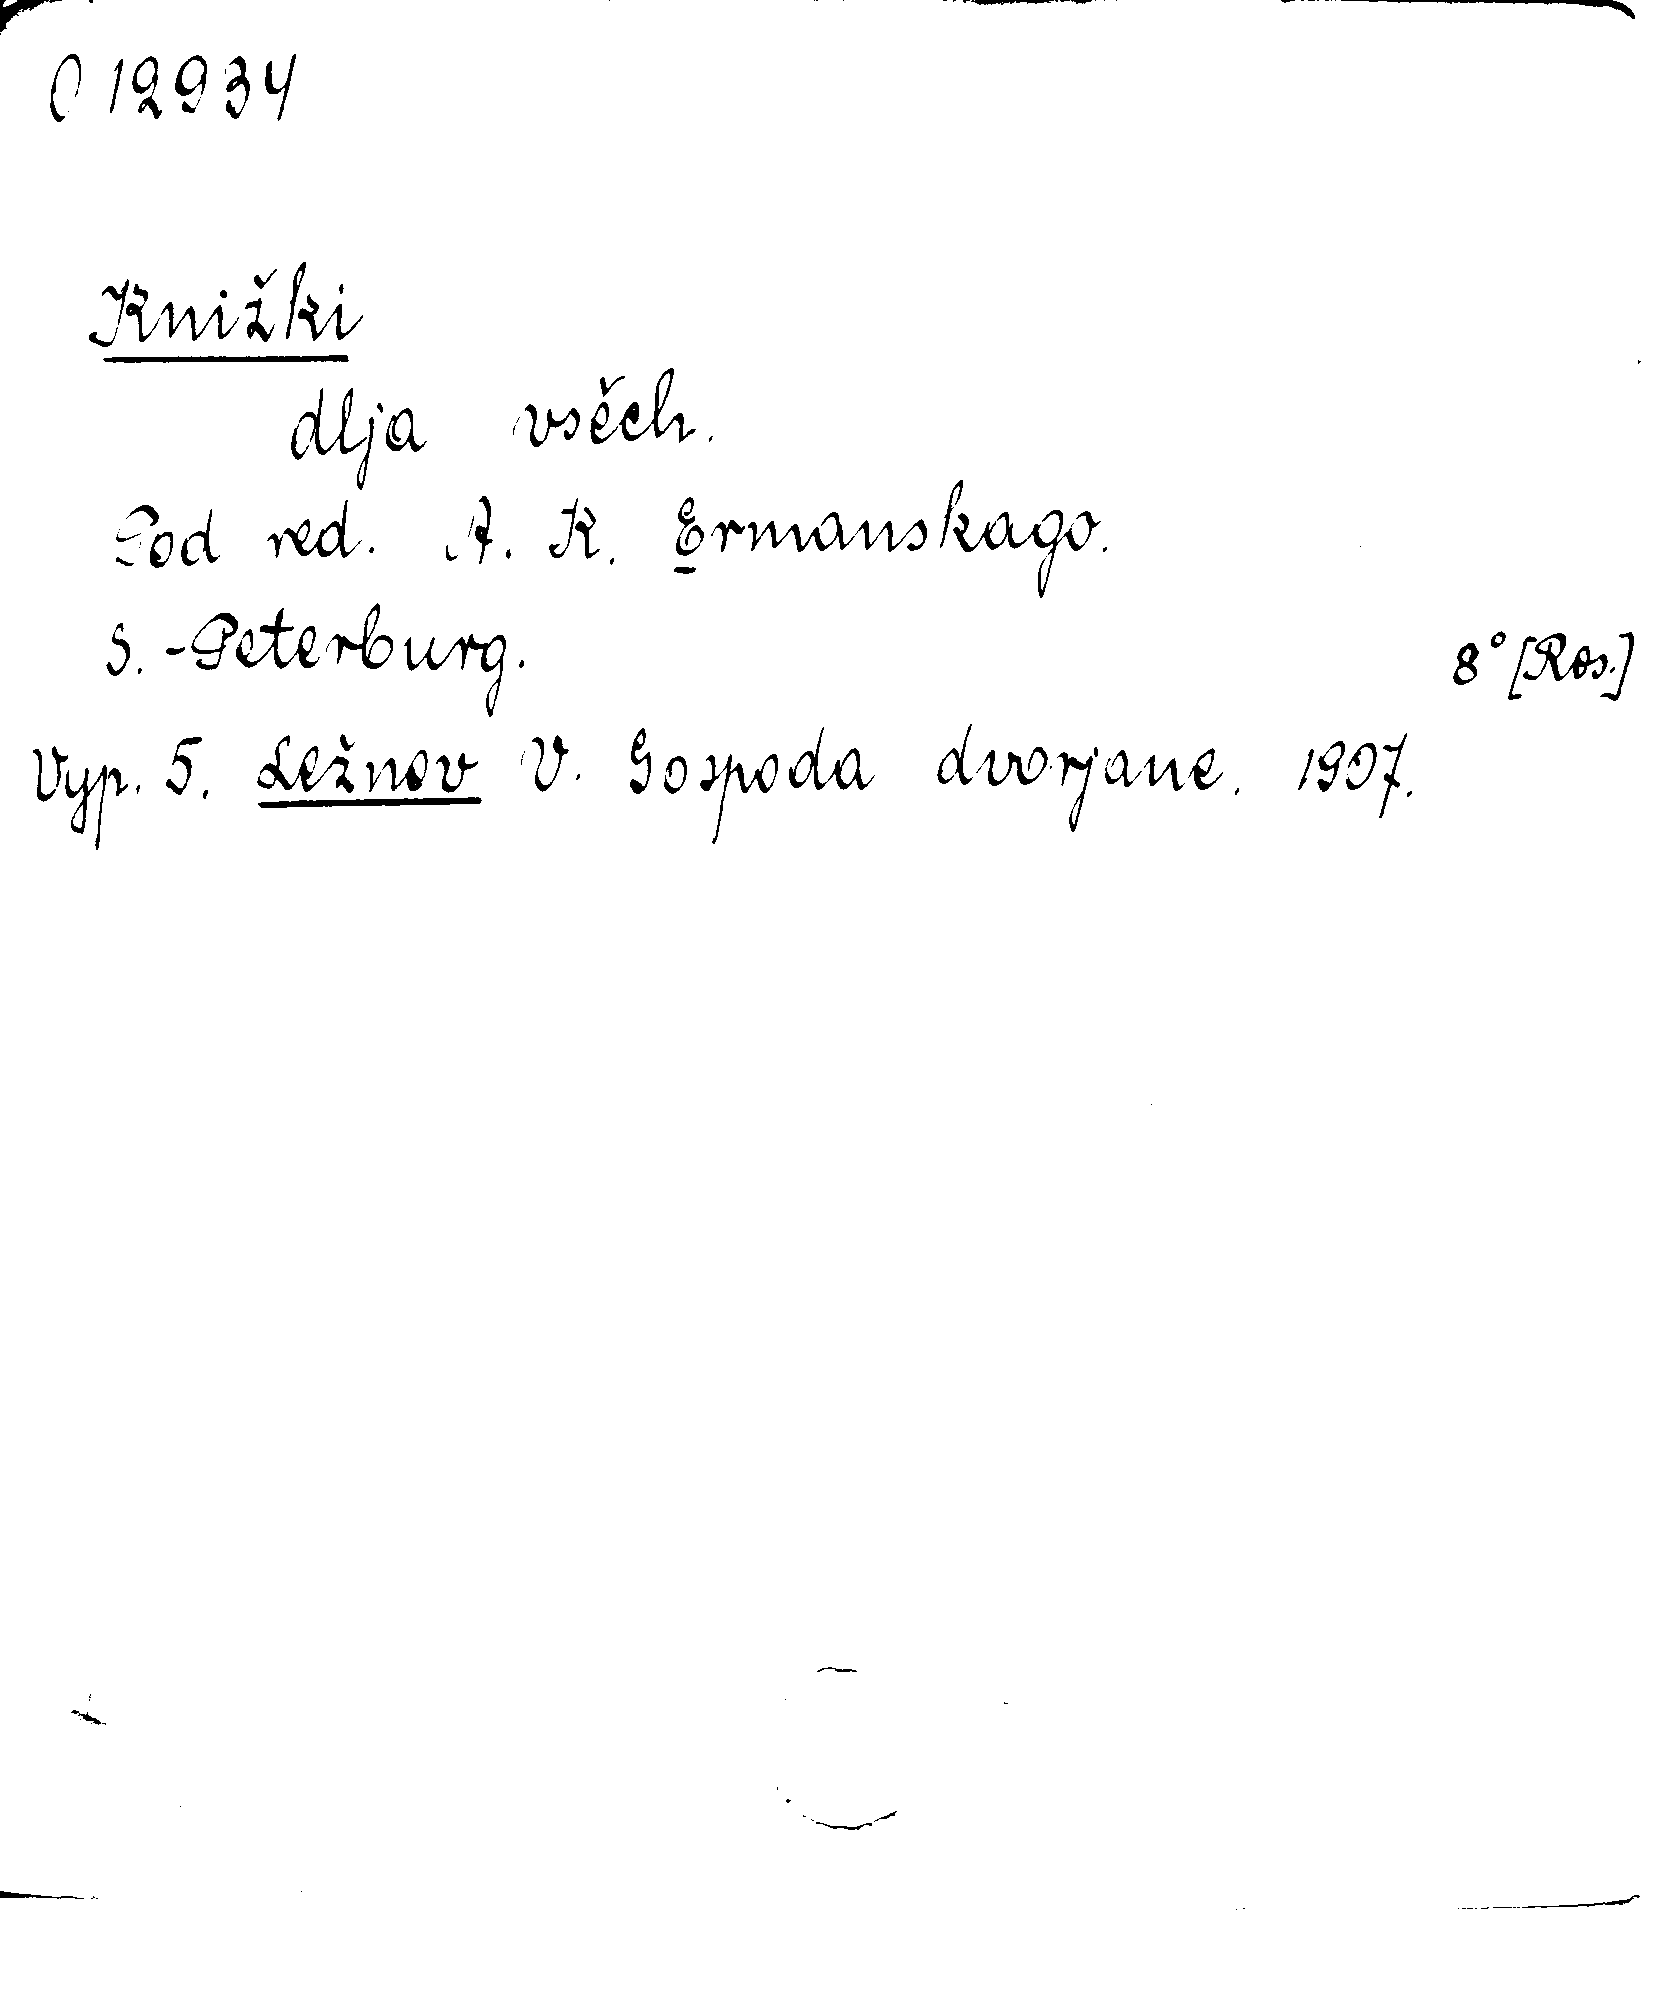 O 12934
Knižki
dlja vsěch.
Pod red. A. K. Ermanskago.
S.-Peterburg.
8° [Ros.]
Vyp. 5. Ležnev V. Gospoda dvorjane. 1907.